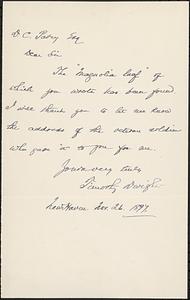 D. C. Pavey Esq
Dear Sir
The "Magnolia leaf" of
which you wrote has been found
I will thank you to let me know
the address of the veteran soldier
who gave it to you
Yours very truly
Timothy Dwight
New Haven Nov. 26 1897.